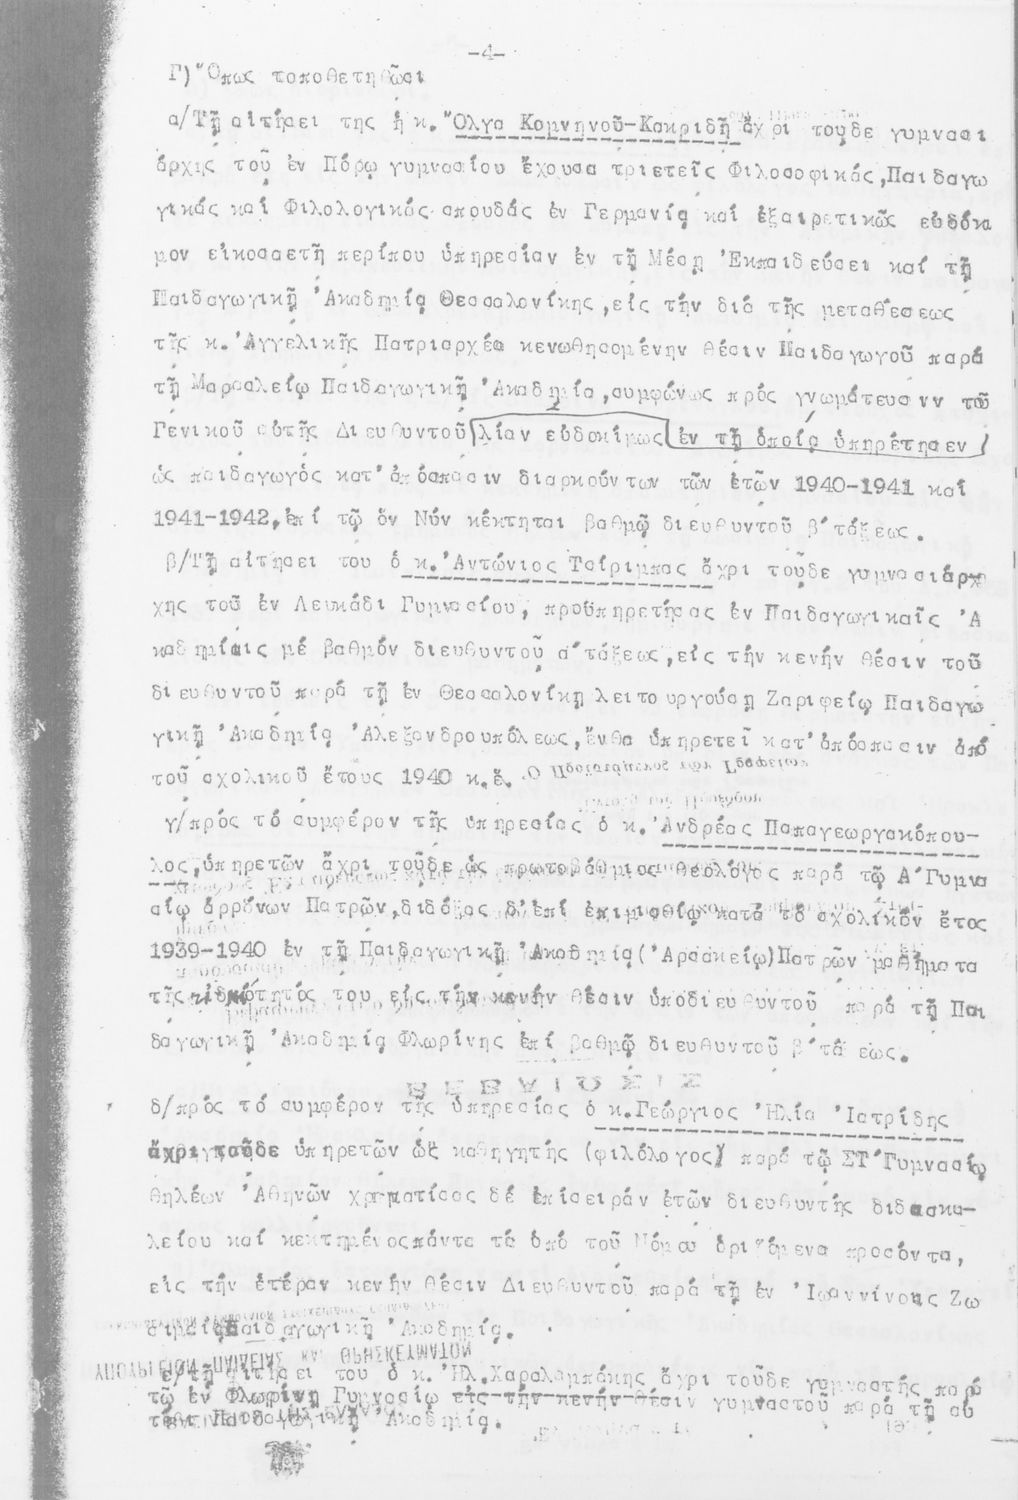 -4-
Γ) Ὅπως τοποθετηθῶσι
α/Τῇ αἰτήσει της ἡ κ. Ὄλγα Κομνηνοῦ-Κακριδῆ ἄχρι τοῦδε γυμνασι
άρχις τοῦ ἐν Πόρῳ γυμνασίου ἔχουσα τριετεῖς Φιλοσοφικάς,Παιδαγω
γικάς καί Φιλολογικάς σπουδάς ἐν Γερμανίᾳ καί ἐξαιρετικῶς εὐδόκι
μον εἰκοσαετῆ περίπου ὑπηρεσίαν ἐν τῇ Μέσῃ Ἐκπαιδεύσει καί τῇ
Παιδαγωγικῇ Ἀκαδημίᾳ Θεσσαλονίκης,εἰς τήν διά τῆς μεταθέσεως
τῆς κ. Ἀγγελικῆς Πατριαρχέα κενωθησομένην θέσιν Παιδαγωγοῦ παρά
τῇ Μαρασλείῳ Παιδαγωγικῇ Ἀκαδημίᾳ,συμφώνως πρός γνωμάτευσιν τοῦ
Γενικοῦ αὐτῆς Διευθυντοῦ λίαν εὐδοκίμως ἐν τῇ ὁποίᾳ ὑπηρέτησεν
ὡς παιδαγωγός κατ' ἀπόσπασιν διαρκούντων τῶν ἐτῶν 1940-1941 καί
1941-1942,ἐπί τῷ ὅν Νῦν κέκτηται βαθμῷ διευθυντοῦ β΄τάξεως.
β/Τῇ αἰτήσει του ὁ κ. Ἀντώνιος Τσίριμπας ἄχρι τοῦδε γυμνασιάρχ
χης τοῦ ἐν Λευκάδι Γυμνασίου, προϋπηρετήσας ἐν Παιδαγωγικαῖς Ἀ
καδημίαις μέ βαθμόν διευθυντοῦ α΄τάξεως,εἰς τήν κενήν θέσιν τοῦ
διευθυντοῦ παρά τῇ ἐν Θεσσαλονίκῃ λειτουργούσῃ Ζαριφείῳ Παιδαγω
γικῇ Ἀκαδημίᾳ Ἀλεξανδρουπόλεως,ἔνθα ὑπηρετεῖ κατ' ἀπόσπασιν ἀπό
τοῦ σχολικοῦ ἔτους 1940 κ.ἑ.
γ/πρός τό συμφέρον τῆς ὑπηρεσίας ὁ κ. Ἀνδρέας Παπαγεωργακόπου-
λος,ὑπηρετῶν ἄχρι τοῦδε ὡς πρωτοβάθμιος θεολόγος παρά τῷ Α΄Γυμνα
σίῳ ἀρρένων Πατρῶν,διδάξας δ' ἐπί ἐπιμισθίῳ κατά τό σχολικόν ἔτος
1939-1940 ἐν τῇ Παιδαγωγικῇ Ἀκαδημίᾳ(Ἀρσακείῳ)Πατρῶν μαθήματα
τῆς εἰδικότητός του εἰς τήν κενήν θέσιν ὑποδιευθυντοῦ παρά τῇ Παι
δαγωγικῇ Ἀκαδημίᾳ Φλωρίνης ἐπί βαθμῷ διευθυντοῦ β΄τά εως.
ΒΕΒΑΙΩΣΙΣ
δ/πρός τό συμφέρον τῆς ὑπηρεσίας ὁ κ.Γεώργιος Ἠλία Ἰατρίδης
ἄχρι τοῦδε ὑπηρετῶν ὡς καθηγητής (φιλόλογος) παρά τῷ ΣΤ΄Γυμνασίῳ
θηλέων Ἀθηνῶν χρηματίσας δέ ἐπί σειράν ἐτῶν διευθυντής διδασκα-
λείου καί κεκτημένος πάντα τά ὑπό τοῦ Νόμου ὁριζόμενα προσόντα,
εἰς τήν ἑτέραν κενήν θέσιν Διευθυντοῦ παρά τῇ ἐν Ἰωαννίνοις Ζω
σιμαίᾳ Παιδαγωγικῇ Ἀκαδημίᾳ.
ΥΠΟΥΡΓΕΙΟΝ ΠΑΙΔΕΙΑΣ ΚΑΙ ΘΡΗΣΚΕΥΜΑΤΩΝ
ε/τῇ αἰτήσει του ὁ κ. Ἠλ.Χαραλαμπάκης ἄχρι τοῦδε γυμναστής παρά
τῷ ἐν Φλωρίνῃ Γυμνασίῳ εἰς τήν κενήν θέσιν γυμναστοῦ παρά τῇ αὐ
τόθι Παιδαγωγικῇ Ἀκαδημίᾳ.